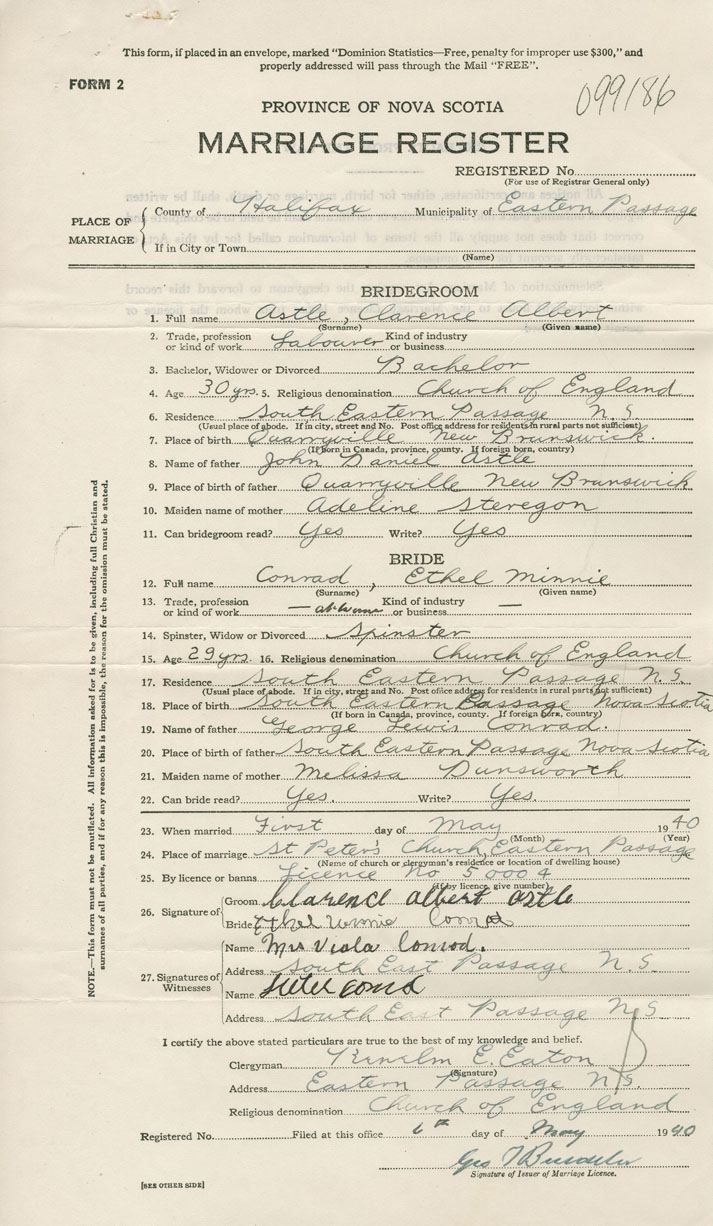 This form, if placed in an envelope, marked "Dominion Statistics—Free, penalty for improper use $300," and
properly addressed will pass through the Mail "FREE".
FORM 2
099186
PROVINCE OF NOVA SCOTIA
MARRIAGE REGISTER
REGISTERED No.
(For use of Registrar General only)
PLACE OF MARRIAGE
County of Halifax Municipality of Eastern Passage
If in City or Town
(Name)
BRIDEGROOM
1. Full name Astle, Clarence Albert
(Surname) (Given name)
2. Trade, profession or kind of work Labourer Kind of industry or business
3. Bachelor, Widower or Divorced Bachelor
4. Age 30 yrs. 5. Religious denomination Church of England
6. Residence South Eastern Passage N.S.
(Usual place of abode. If in city, street and No. Post office address for residents in rural parts not sufficient)
7. Place of birth Quarryville New Brunswick.
(If born in Canada, province, county. If foreign born, country)
8. Name of father John Daniel Astle
9. Place of birth of father Quarryville New Brunswick
10. Maiden name of mother Adeline
11. Can bridegroom read? Yes Write? Yes
BRIDE
12. Full name Conrad, Ethel Minnie
(Surname) (Given name)
13. Trade, profession or kind of work — at home Kind of industry or business —
14. Spinster, Widow or Divorced Spinster
15. Age 29 yrs. 16. Religious denomination Church of England
17. Residence South Eastern Passage N.S.
(Usual place of abode. If in city, street and No. Post office address for residents in rural parts not sufficient)
18. Place of birth South Eastern Passage Nova Scotia
(If born in Canada, province, county. If foreign born, country)
19. Name of father George Lewis Conrad.
20. Place of birth of father South Eastern Passage Nova Scotia
21. Maiden name of mother Melissa Dunsworth
22. Can bride read? Yes. Write? Yes.
23. When married First day of May 1940
(Month) (Year)
24. Place of marriage St Peter's Church, Eastern Passage
(Name of church or clergyman's residence or location of dwelling house)
25. By licence or banns Licence No 50004
(If by licence, give number)
26. Signature of
Groom Clarence albert astle
Bride Ethel Conrad
27. Signatures of Witnesses
Name Mrs Viola Conrod.
Address South East Passage N.S.
Name
Address South East Passage N.S
I certify the above stated particulars are true to the best of my knowledge and belief.
Clergyman Kenelm E. Eaton
(Signature)
Address Eastern Passage N.S.
Religious denomination Church of England
Registered No. Filed at this office 6th day of May 1940
Geo
Signature of Issuer of Marriage Licence.
[SEE OTHER SIDE]
NOTE.—This form must not be mutilated. All information asked for is to be given, including full Christian and
surnames of all parties, and if for any reason this is impossible, the reason for the omission must be stated.